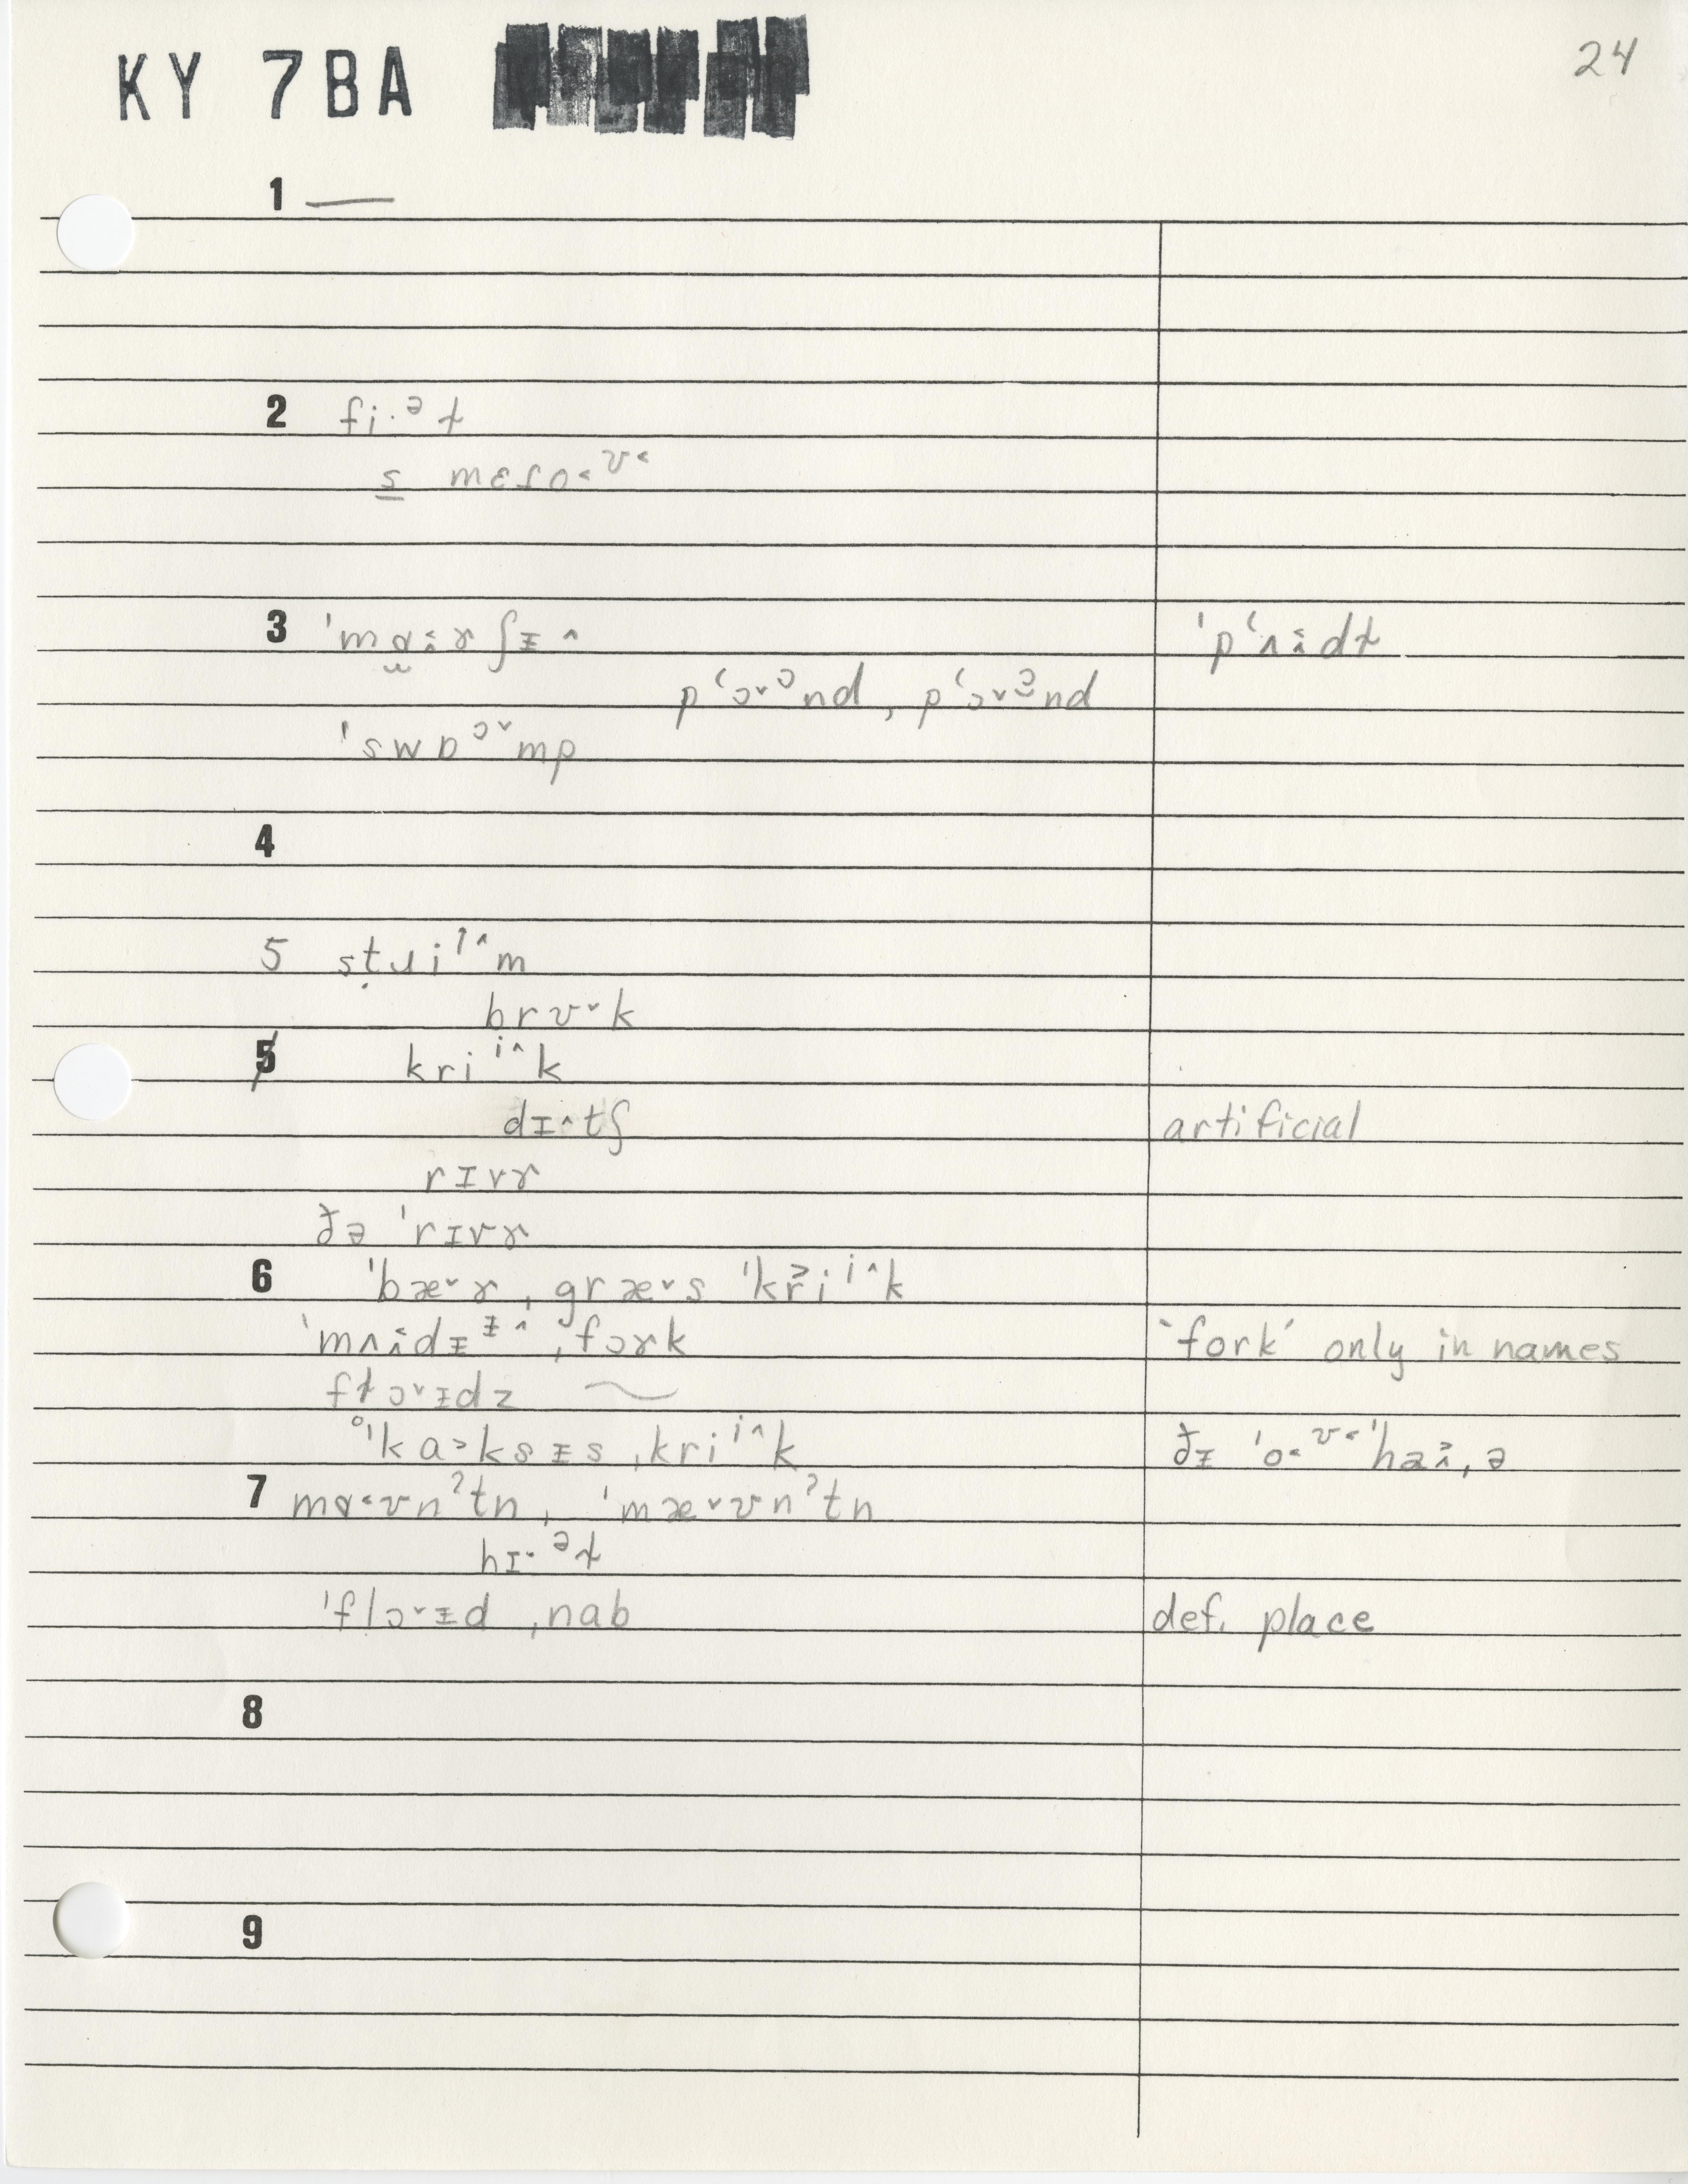 KY 7BA
24
1 —
2 fi·ᵊɫ
s̲ mɛɾo˂ᶷ˂
3 ˈmɑ̯i˂ɚʃɨ^ ˈpʻʌi˂dɫ
pʻɔ˅ᵓnd, pʻɔ˅ᵓ̃nd
ˈswɒᵓ˅mp
4
5 sṭɹiⁱ^m
brʊ˅k
5 kriⁱ^k
dɪ^tʃ artificial
rɪvɚ
ðə ˈrɪvɚ
6 ˈbæ˅ɚ ˌgræ˅s ˈkr̆iⁱ^k
ˈmʌi˂dɨᶤ^ ˌfɔɚk ‘fork’ only in names
fɫɔ˅ɨdz ~
°ˈka˃ksɨs ˌkriⁱ^k ðɨ ˈo˂ᶷ˂ˈhai˃ˌə
7 mɑ˂ʊnˀtn, ˈmæ˅ʊnˀtn
hɪ·ᵊɫ
ˈflɔ˅ɨd ˌnab def. place
8
9